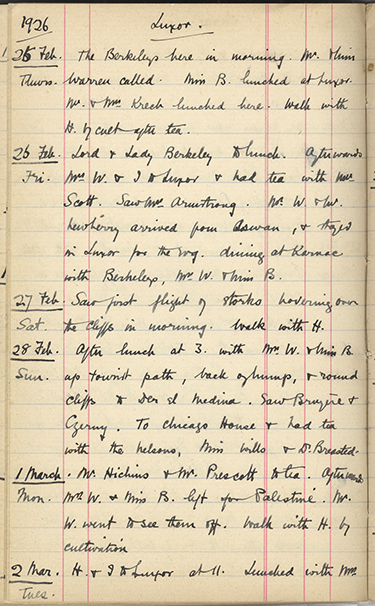 1926 Luxor.
25 Feb. The Berkeleys here in morning. Mr. & Miss
Thurs. Warren called. Miss B. lunched at Luxor.
Mr. & Mrs Krech lunched here. Walk with
H. by cult after tea.
26 Feb. Lord & Lady Berkeley to lunch. Afterwards
Fri. Mrs W. & I to Luxor & had tea with Mrs
Scott. Saw Mrs Armstrong. Mr. W. & Mr.
Newberry arrived from Aswan, & stayed
in Luxor for the dining at Karnac
with Berkeleys, Mrs W. & Miss B.
27 Feb. Saw first flight of storks hovering over
Sat. the cliffs in morning. Walk with H.
28 Feb. After lunch at 3. with Mrs W. & Miss B.
Sun. up tourist path, back of hump, & round
cliffs to Der el Medina. Saw Bruyère &
Czerny. To Chicago House & had tea
with the Nelsons, Miss Wills & Dr. Breasted.
1 March. Mr Hichins & Mr. Prescott to tea. Afterwards
Mon. Mrs W. & Miss B. left for Palestine. Mr.
W. went to see them off. Walk with H. by
cultivation
2 Mar. H. & I to Luxor at 11. Lunched with Mrs
Tues.